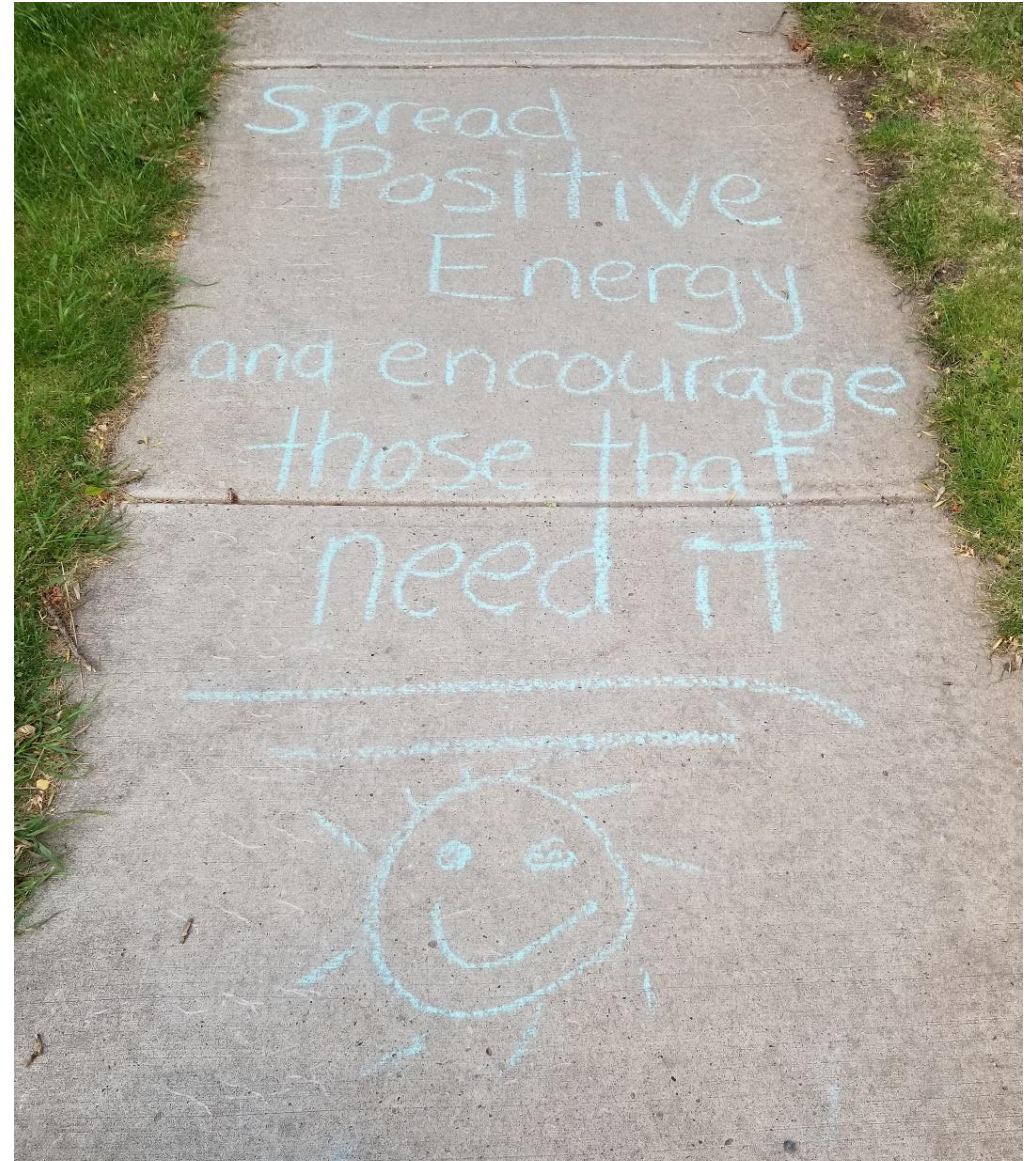 Spread
Positive
Energy
and encourage
those that
need it